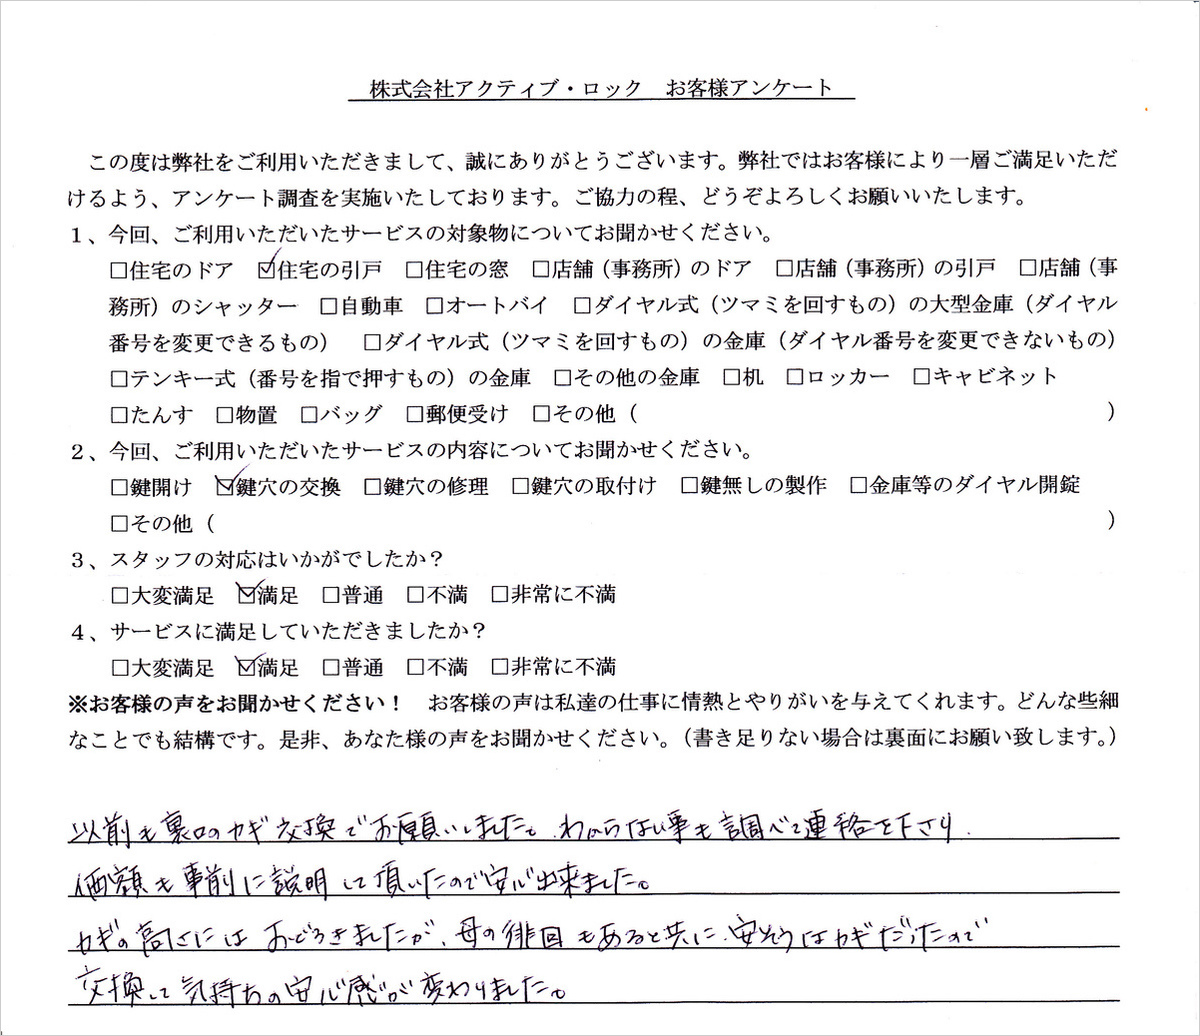 株式会社アクティブ・ロック　お客様アンケート
この度は弊社をご利用いただきまして、誠にありがとうございます。弊社ではお客様により一層ご満足いただ
けるよう、アンケート調査を実施いたしております。ご協力の程、どうぞよろしくお願いいたします。
１、今回、ご利用いただいたサービスの対象物についてお聞かせください。
□住宅のドア　☑住宅の引戸　□住宅の窓　□店舗（事務所）のドア　□店舗（事務所）の引戸　□店舗（事
務所）のシャッター　□自動車　□オートバイ　□ダイヤル式（ツマミを回すもの）の大型金庫（ダイヤル
番号を変更できるもの）　□ダイヤル式（ツマミを回すもの）の金庫（ダイヤル番号を変更できないもの）
□テンキー式（番号を指で押すもの）の金庫　□その他の金庫　□机　□ロッカー　□キャビネット
□たんす　□物置　□バッグ　□郵便受け　□その他（　　　　　　　　　　）
２、今回、ご利用いただいたサービスの内容についてお聞かせください。
□鍵開け　☑鍵穴の交換　□鍵穴の修理　□鍵穴の取付け　□鍵無しの製作　□金庫等のダイヤル開錠
□その他（　　　　　　　　　　）
３、スタッフの対応はいかがでしたか？
□大変満足　☑満足　□普通　□不満　□非常に不満
４、サービスに満足していただきましたか？
□大変満足　☑満足　□普通　□不満　□非常に不満
※お客様の声をお聞かせください！　お客様の声は私達の仕事に情熱とやりがいを与えてくれます。どんな些細
なことでも結構です。是非、あなた様の声をお聞かせください。（書き足りない場合は裏面にお願い致します。）
以前も裏口のカギ交換でお願いしました。わからない事も調べて連絡を下さり
価額も事前に説明して頂いたので安心出来ました。
カギの高さにはおどろきましたが、母の徘回もあると共に、安そうなカギだったので
交換して気持ちの安心感が変わりました。